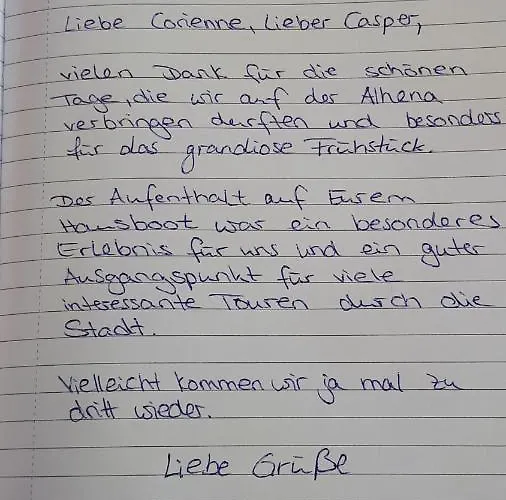 Liebe Corienne, Lieber Casper,
vielen Dank für die schönen
Tage, die wir auf der Alhena
verbringen durften und besonders
für das grandiose Frühstück.
Der Aufenthalt auf Eurem
Hausboot war ein besonderes
Erlebnis für uns und ein guter
Ausgangspunkt für viele
interessante Touren durch die
Stadt.
Vielleicht kommen wir ja mal zu
dritt wieder.
Liebe Grüße